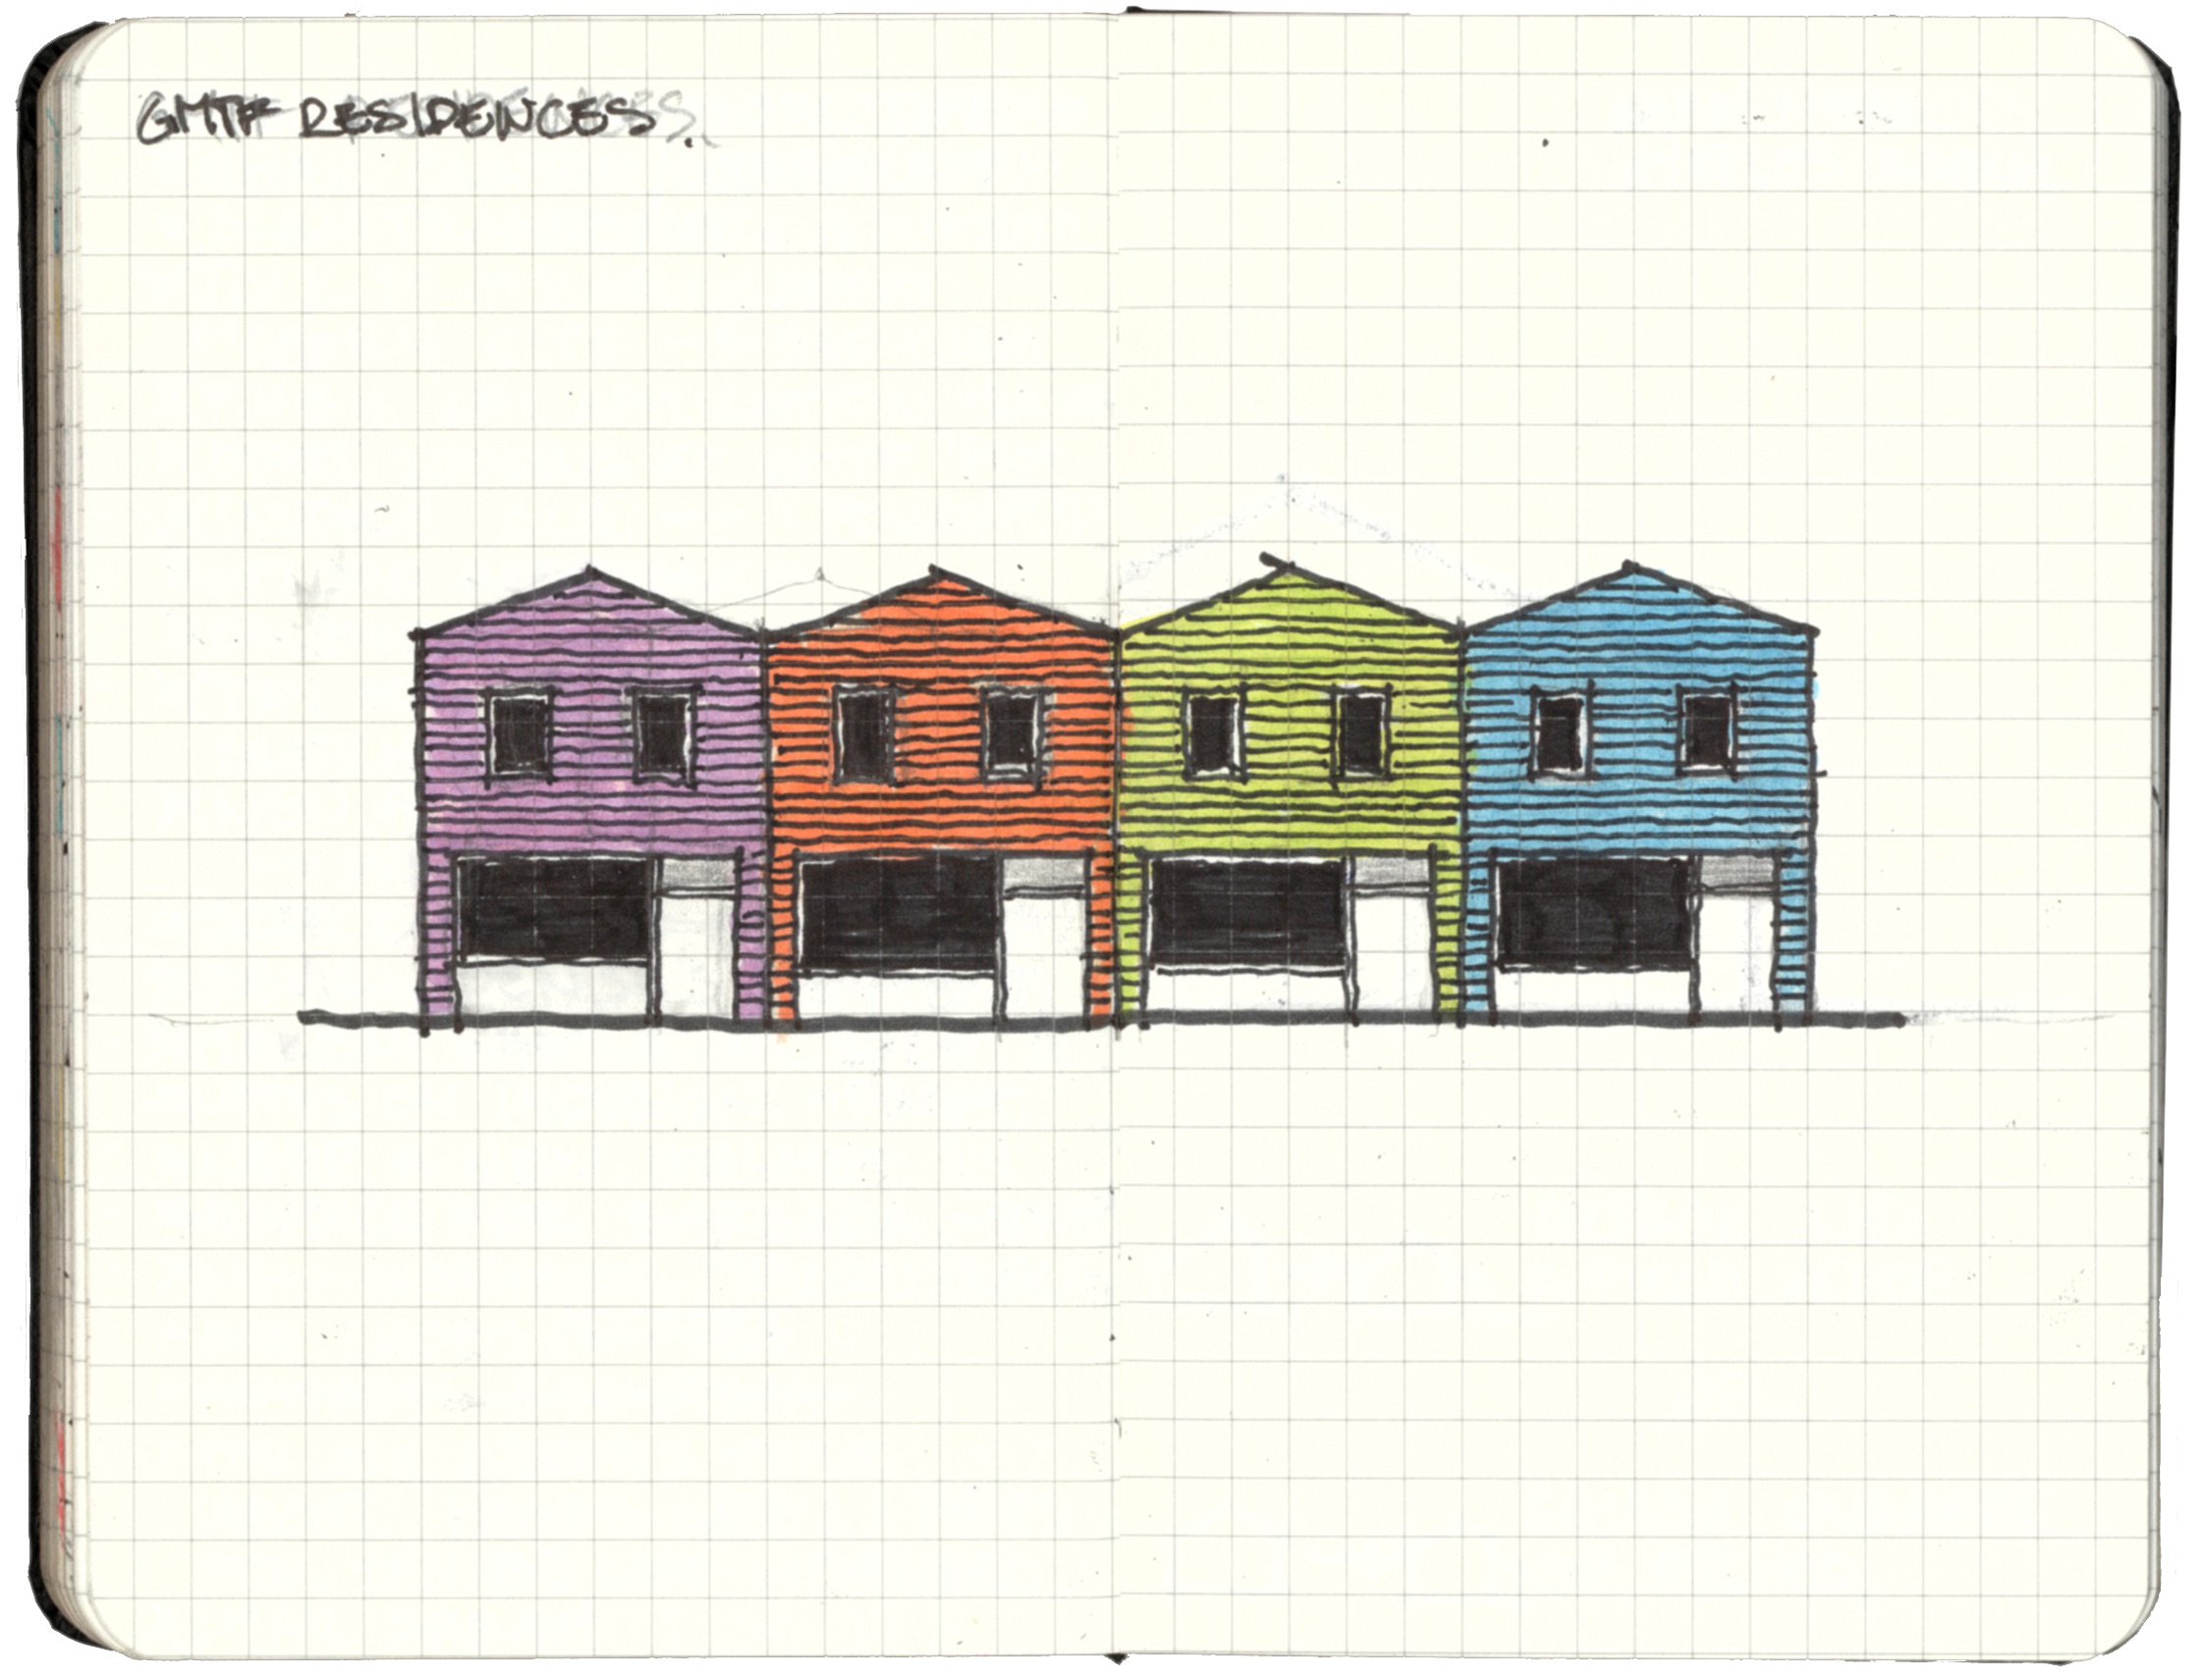 GMTF RESIDENCES.